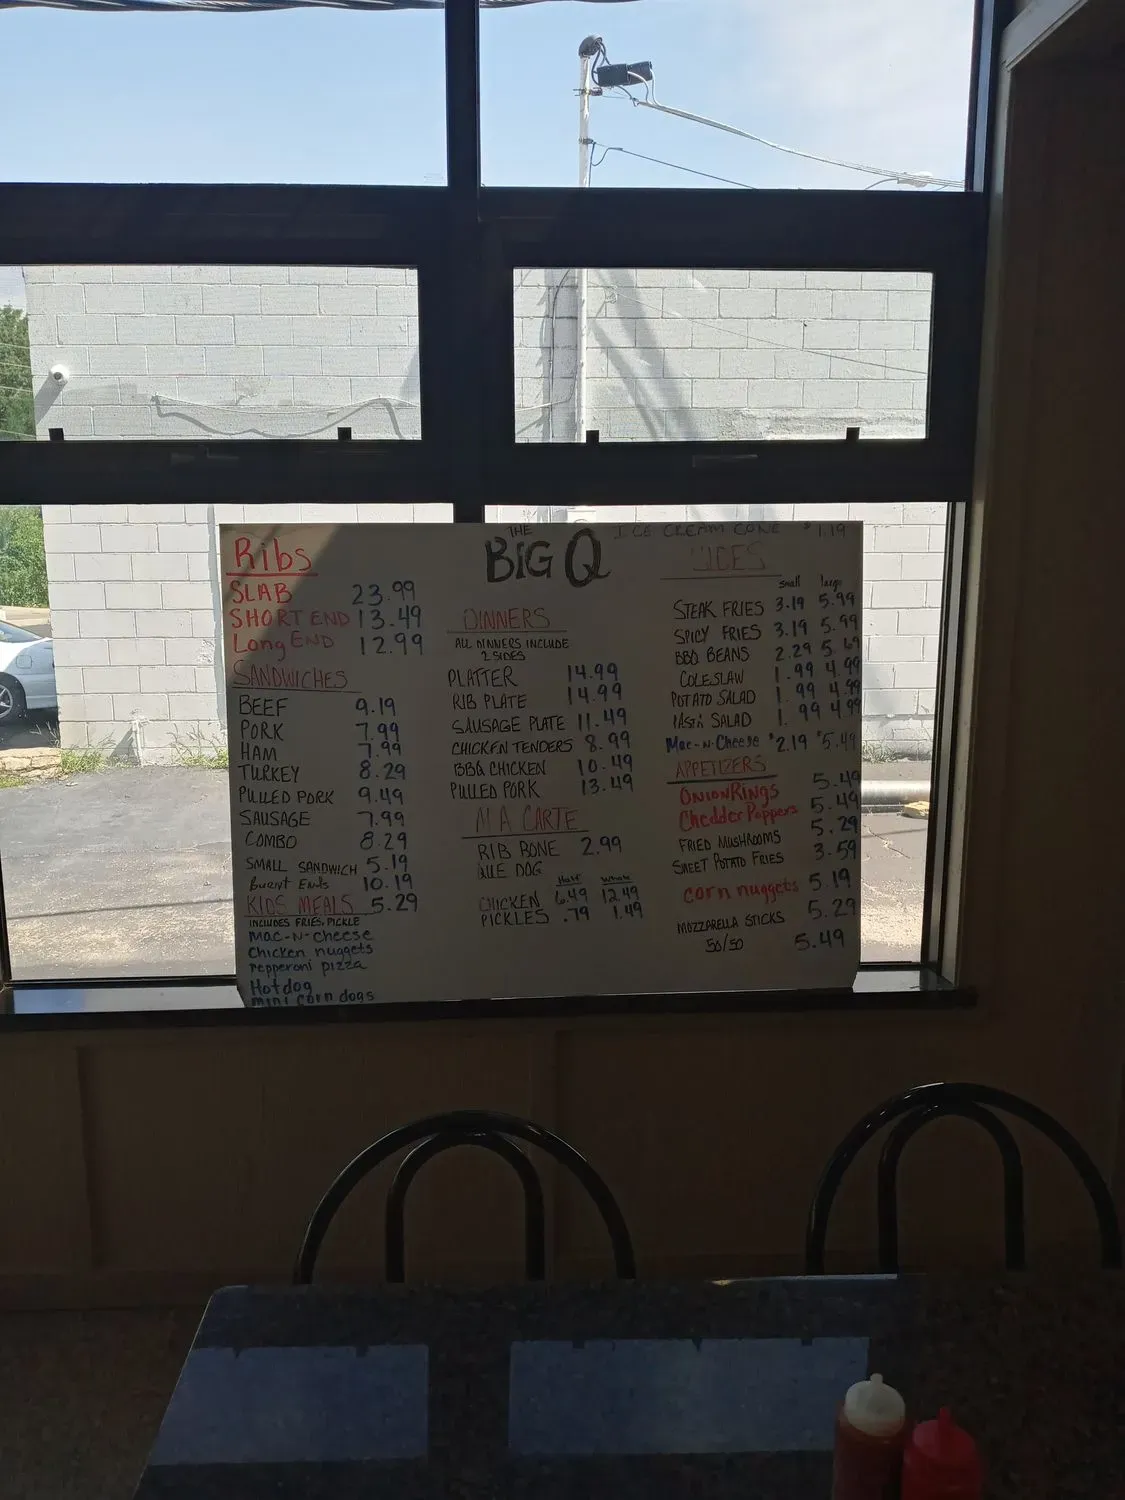 THE
BIG Q
ICE CREAM CONE $1.19
Ribs
SLAB 23.99
SHORT END 13.49
Long END 12.99
SANDWICHES
BEEF 9.19
PORK 7.99
HAM 7.99
TURKEY 8.29
PULLED PORK 9.49
SAUSAGE 7.99
COMBO 8.29
SMALL SANDWICH 5.19
Burnt Ends 10.19
KIDS MEALS 5.29
INCLUDES FRIES, PICKLE
Mac-N-Cheese
Chicken nuggets
Pepperoni pizza
Hotdog
mini corn dogs
DINNERS
ALL DINNERS INCLUDE
2 SIDES
PLATTER 14.99
RIB PLATE 14.99
SAUSAGE PLATE 11.49
CHICKEN TENDERS 8.99
BBQ CHICKEN 10.49
PULLED PORK 13.49
A CARTE
RIB BONE 2.99
QUE DOG
Half Whole
CHICKEN 6.49 12.49
PICKLES .79 1.49
SIDES
small large
STEAK FRIES 3.19 5.99
SPICY FRIES 3.19 5.99
BBQ BEANS 2.29 5.69
COLESLAW 1.99 4.99
POTATO SALAD 1.99 4.99
PASTA SALAD 1.99 4.99
Mac-N-Cheese $2.19 $5.49
APPETIZERS
ONION RINGS 5.49
Chedder Poppers 5.49
FRIED MUSHROOMS 5.29
SWEET POTATO FRIES 3.59
corn nuggets 5.19
MOZZARELLA STICKS 5.29
50/50 5.49